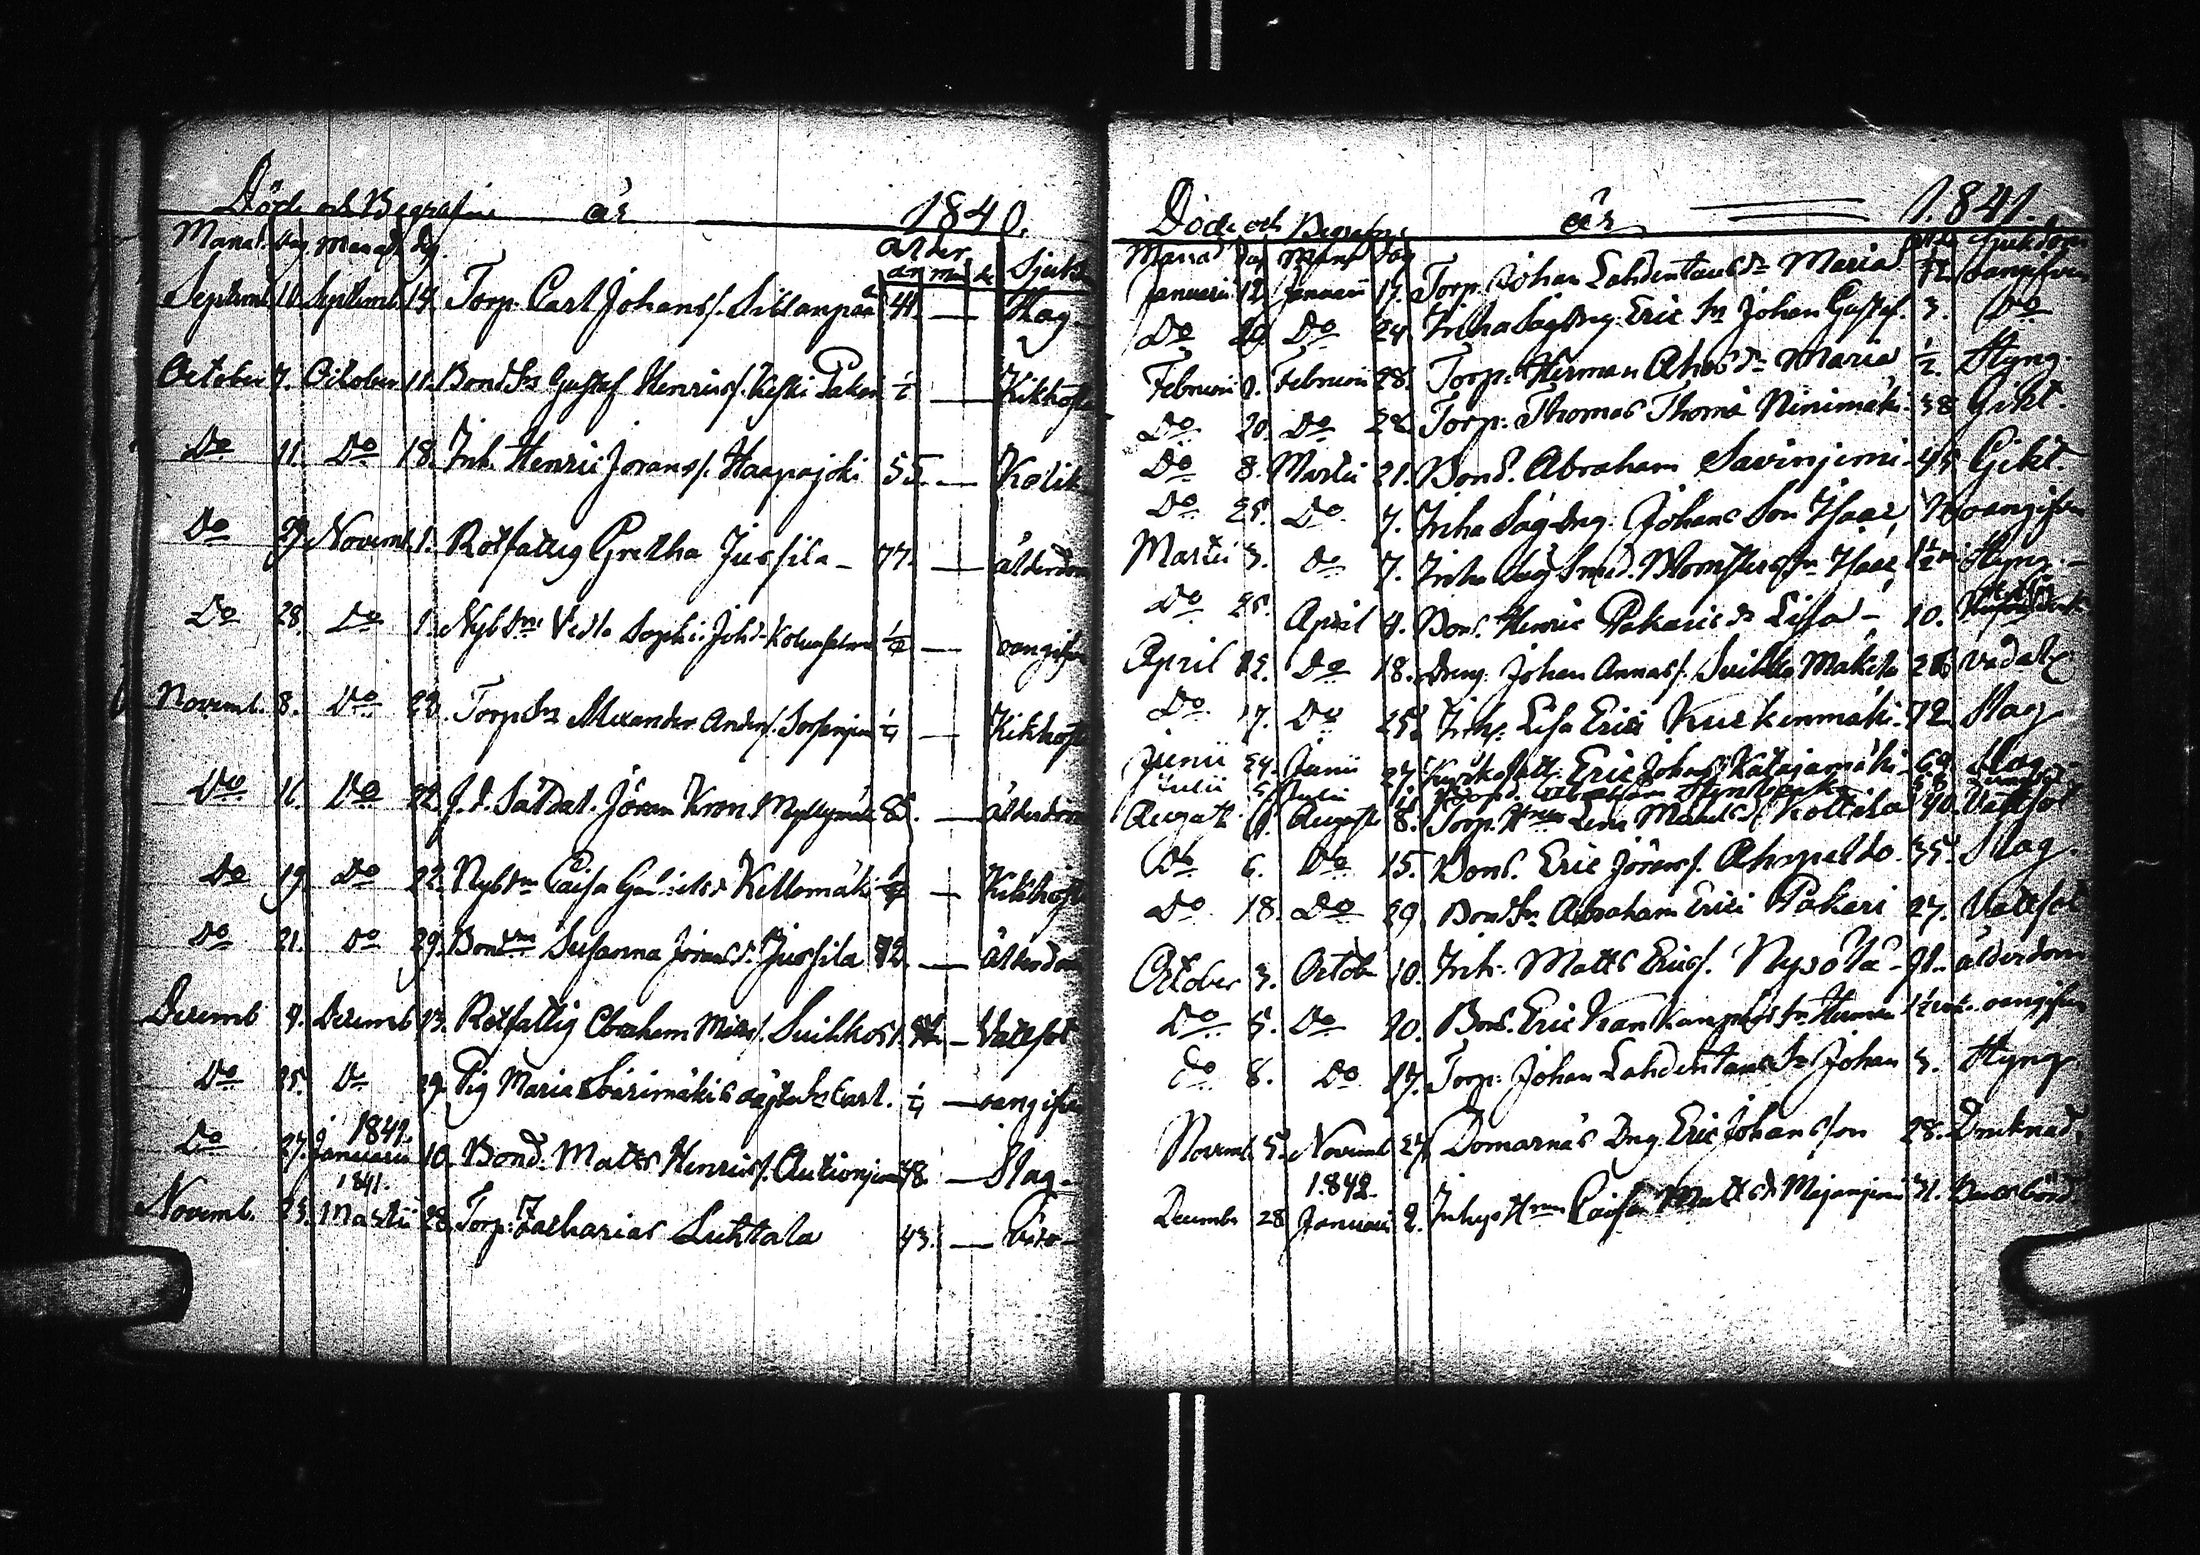 Döde och Begrafne år 1840.
Månad. Dag Månad. dg. ålder
år mån Sjukd
Septemb. 11. Septemb. 14. Torp. Carl Johanss. Sillanpää 41. — Slag.
October 7. October 11. Bond Sn Gustaf Henricss. Keski Pakari ½ — Kikhosta
Do 11. Do 18. Inh. Henric Joranss. Haapajoki 55. — Kolik
Do 29. Novemb. 1. Rotfattig Gretha Jussila — 77. — ålderdom
Do 28. Do 1. Nyb Sophia Joh ½ — oangifven
Novemb. 8. Do 22. Torp Sn Alexander Anders. ¼ — Kikhosta
Do 16. Do 22. f. d. Soldat. Jöran Kron 85. — ålderdom
Do 19. Do 22. Nyb Caisa Kellomäki — Kikhosta
Do 21. Do 29. Bond Susanna Jöransd. Jussila 72 — ålderdom
Decemb 4. Decemb 13. Rotfattig Abraham Matss. Suikkos — Vattsot
Do 25. Do 29. Pig Maria oägta Sn Carl. ¼ — oangifven
1841.
Do 27. Januarii 10. Bond. Matts Henricss. 48. — Slag.
1841.
Novemb. 23. Martii 28. Torp. Zacharias Luhtala 43. —
Döde och Begrafne år 1841.
Månad Dag Månad Dag Sjukdom
Januarii 12. Januarii 17. Torp. Johan Lahdentaus dr Maria oangifven
Do 20. Do 24. Inha Såg Dreng. Eric Sn Johan Gustaf. 3. Do
Februarii 9. Februarii 28. Torp. Herman Ahos dr Maria ½. Styng.
Do 20. Do 28. Torp. Thomas Thoma Ninimäki. 38 Gikt.
Do 8. Martii 21. Bond. Abraham Savinjemi. 45 Gikt.
Do 25. Do 7. Inha Såg Dreng. Johans Son Isaac, oangifven
Martii 3. Do 7. Inha Såg Smed. Sn Isac, 1½ Styng.
Do 25. April 4. Bond. Henric Pakaris dr Lisa — 10.
April 12. Do 18. Dreng. Johan Annass. Suikko Mäkilä vådal
Do 17. Do 25. Inhs. Lisa Erici Kuckenmäki. 72. Slag
Junii 24. Junii 27. Eric Johanss. Katajamäki 69. Slag
Julii Julii Abraham
Augusti 1. Augusti 8. Torp. Hru Lena Mattsd. Kottila 40. Vattsot
Do 6. Do 15. Bond. Eric Jöranss. Ahopelto. 35. Slag.
Do 18. Do 29. Bond Sn Abraham Erici Pakari 27. Vattsot
October 3. Octob 10. Inh. Matts Ericss. 91. ålderdom
Do 5. Do 10. Bond. Eric Kankaanpääs Sn Herman oangifven
Do 8. Do 17. Torp. Johan Lahdentaus Sn Johan 3. Styng.
Novemb. 5. Novemb 27. Domarnäs Dng. Eric Johansson 28. Drunknad.
1842.
Decembr 28 Januarii 2. Inhys Hru Caisa Matts dr Majanjemi 31. Barnsbörd.